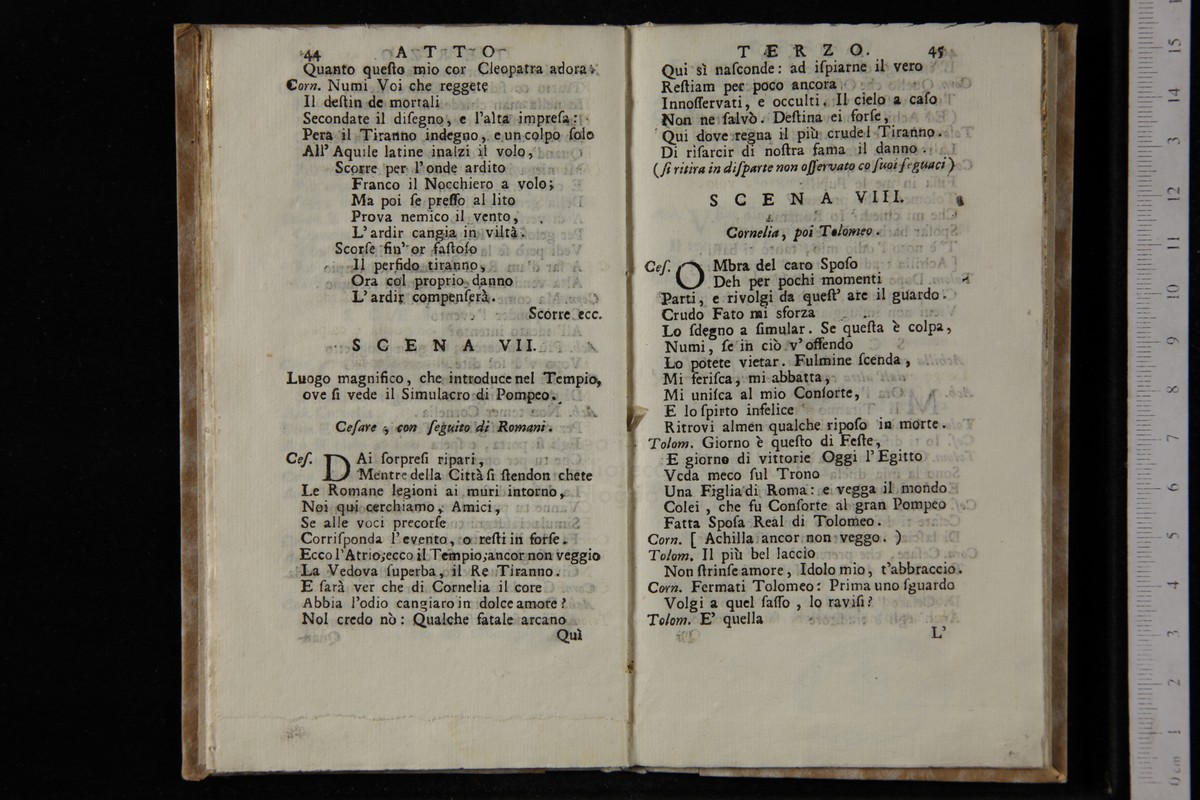 44 ATTO
Quanto queſto mio cor Cleopatra adora.
Corn. Numi Voi che reggete
Il deſtin de mortali
Secondate il diſegno, e l'alta impreſa:
Pera il Tiranno indegno, e un colpo ſolo
All' Aquile latine inalzi il volo,
Scorre per l'onde ardito
Franco il Nocchiero a volo;
Ma poi ſe preſſo al lito
Prova nemico il vento,
L'ardir cangia in viltà.
Scorſe fin' or faſtoſo
Il perfido tiranno,
Ora col proprio danno
L'ardir compenſerà.
Scorre ecc.
SCENA VII.
Luogo magnifico, che introduce nel Tempio,
ove ſi vede il Simulacro di Pompeo.
Ceſare, con ſeguito di Romani.
Ceſ. DAi ſorpreſi ripari,
Mentre della Città ſi ſtendon chete
Le Romane legioni ai muri intorno,
Noi qui cerchiamo, Amici,
Se alle voci precorſe
Corriſponda l'evento, o reſti in forſe.
Ecco l'Atrio; ecco il Tempio; ancor non veggio
La Vedova ſuperba, il Re Tiranno.
E ſarà ver che di Cornelia il core
Abbia l'odio cangiaro in dolce amore?
Nol credo nò: Qualche fatale arcano
Quì
TERZO. 45
Qui sì naſconde: ad iſpiarne il vero
Reſtiam per poco ancora
Innoſſervati, e occulti. Il cielo a caſo
Non ne ſalvò. Deſtina ei forſe,
Qui dove regna il più crudel Tiranno.
Di riſarcir di noſtra fama il danno.
(ſi ritira in diſparte non oſſervato co ſuoi ſeguaci)
SCENA VIII.
Cornelia, poi Tolomeo.
Ceſ. OMbra del caro Spoſo
Deh per pochi momenti
Parti, e rivolgi da queſt' are il guardo.
Crudo Fato mi sforza
Lo ſdegno a ſimular. Se queſta è colpa,
Numi, ſe in ciò v'offendo
Lo potete vietar. Fulmine ſcenda,
Mi feriſca, mi abbatta,
Mi uniſca al mio Conſorte,
E lo ſpirto infelice
Ritrovi almen qualche ripoſo in morte.
Tolom. Giorno è queſto di Feſte,
E giorno di vittorie Oggi l'Egitto
Veda meco ſul Trono
Una Figlia di Roma: e vegga il mondo
Colei, che fu Conſorte al gran Pompeo
Fatta Spoſa Real di Tolomeo.
Corn. [ Achilla ancor non veggo. )
Tolom. Il più bel laccio
Non ſtrinſe amore, Idolo mio, t'abbraccio.
Corn. Fermati Tolomeo: Prima uno ſguardo
Volgi a quel ſaſſo, lo raviſi?
Tolom. E' quella
L'